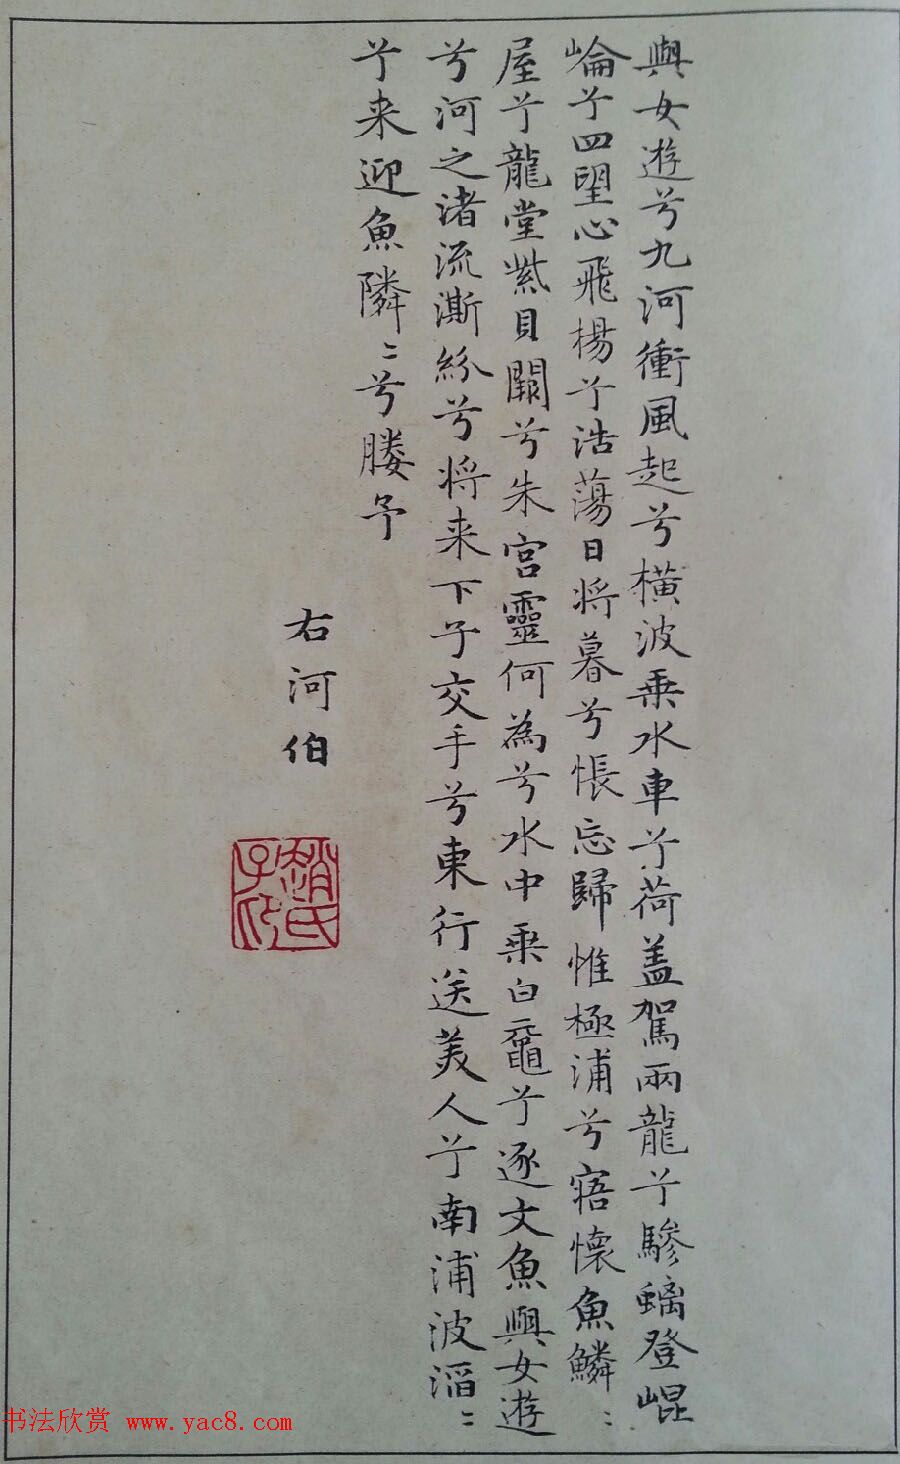 與女遊兮九河衝風起兮橫波乗水車兮荷盖駕兩龍兮驂螭登崐
崘兮四望心飛楊兮浩蕩日将暮兮悵忘歸惟極浦兮寤懷魚鱗〻
屋兮龍堂紫貝闕兮朱宮靈何為兮水中乗白黿兮逐文魚與女遊
兮河之渚流澌紛兮将来下子交手兮東行送美人兮南浦波滔〻
兮来迎魚隣〻兮媵予
右河伯
趙氏
子
书法欣赏 www.yac8.com